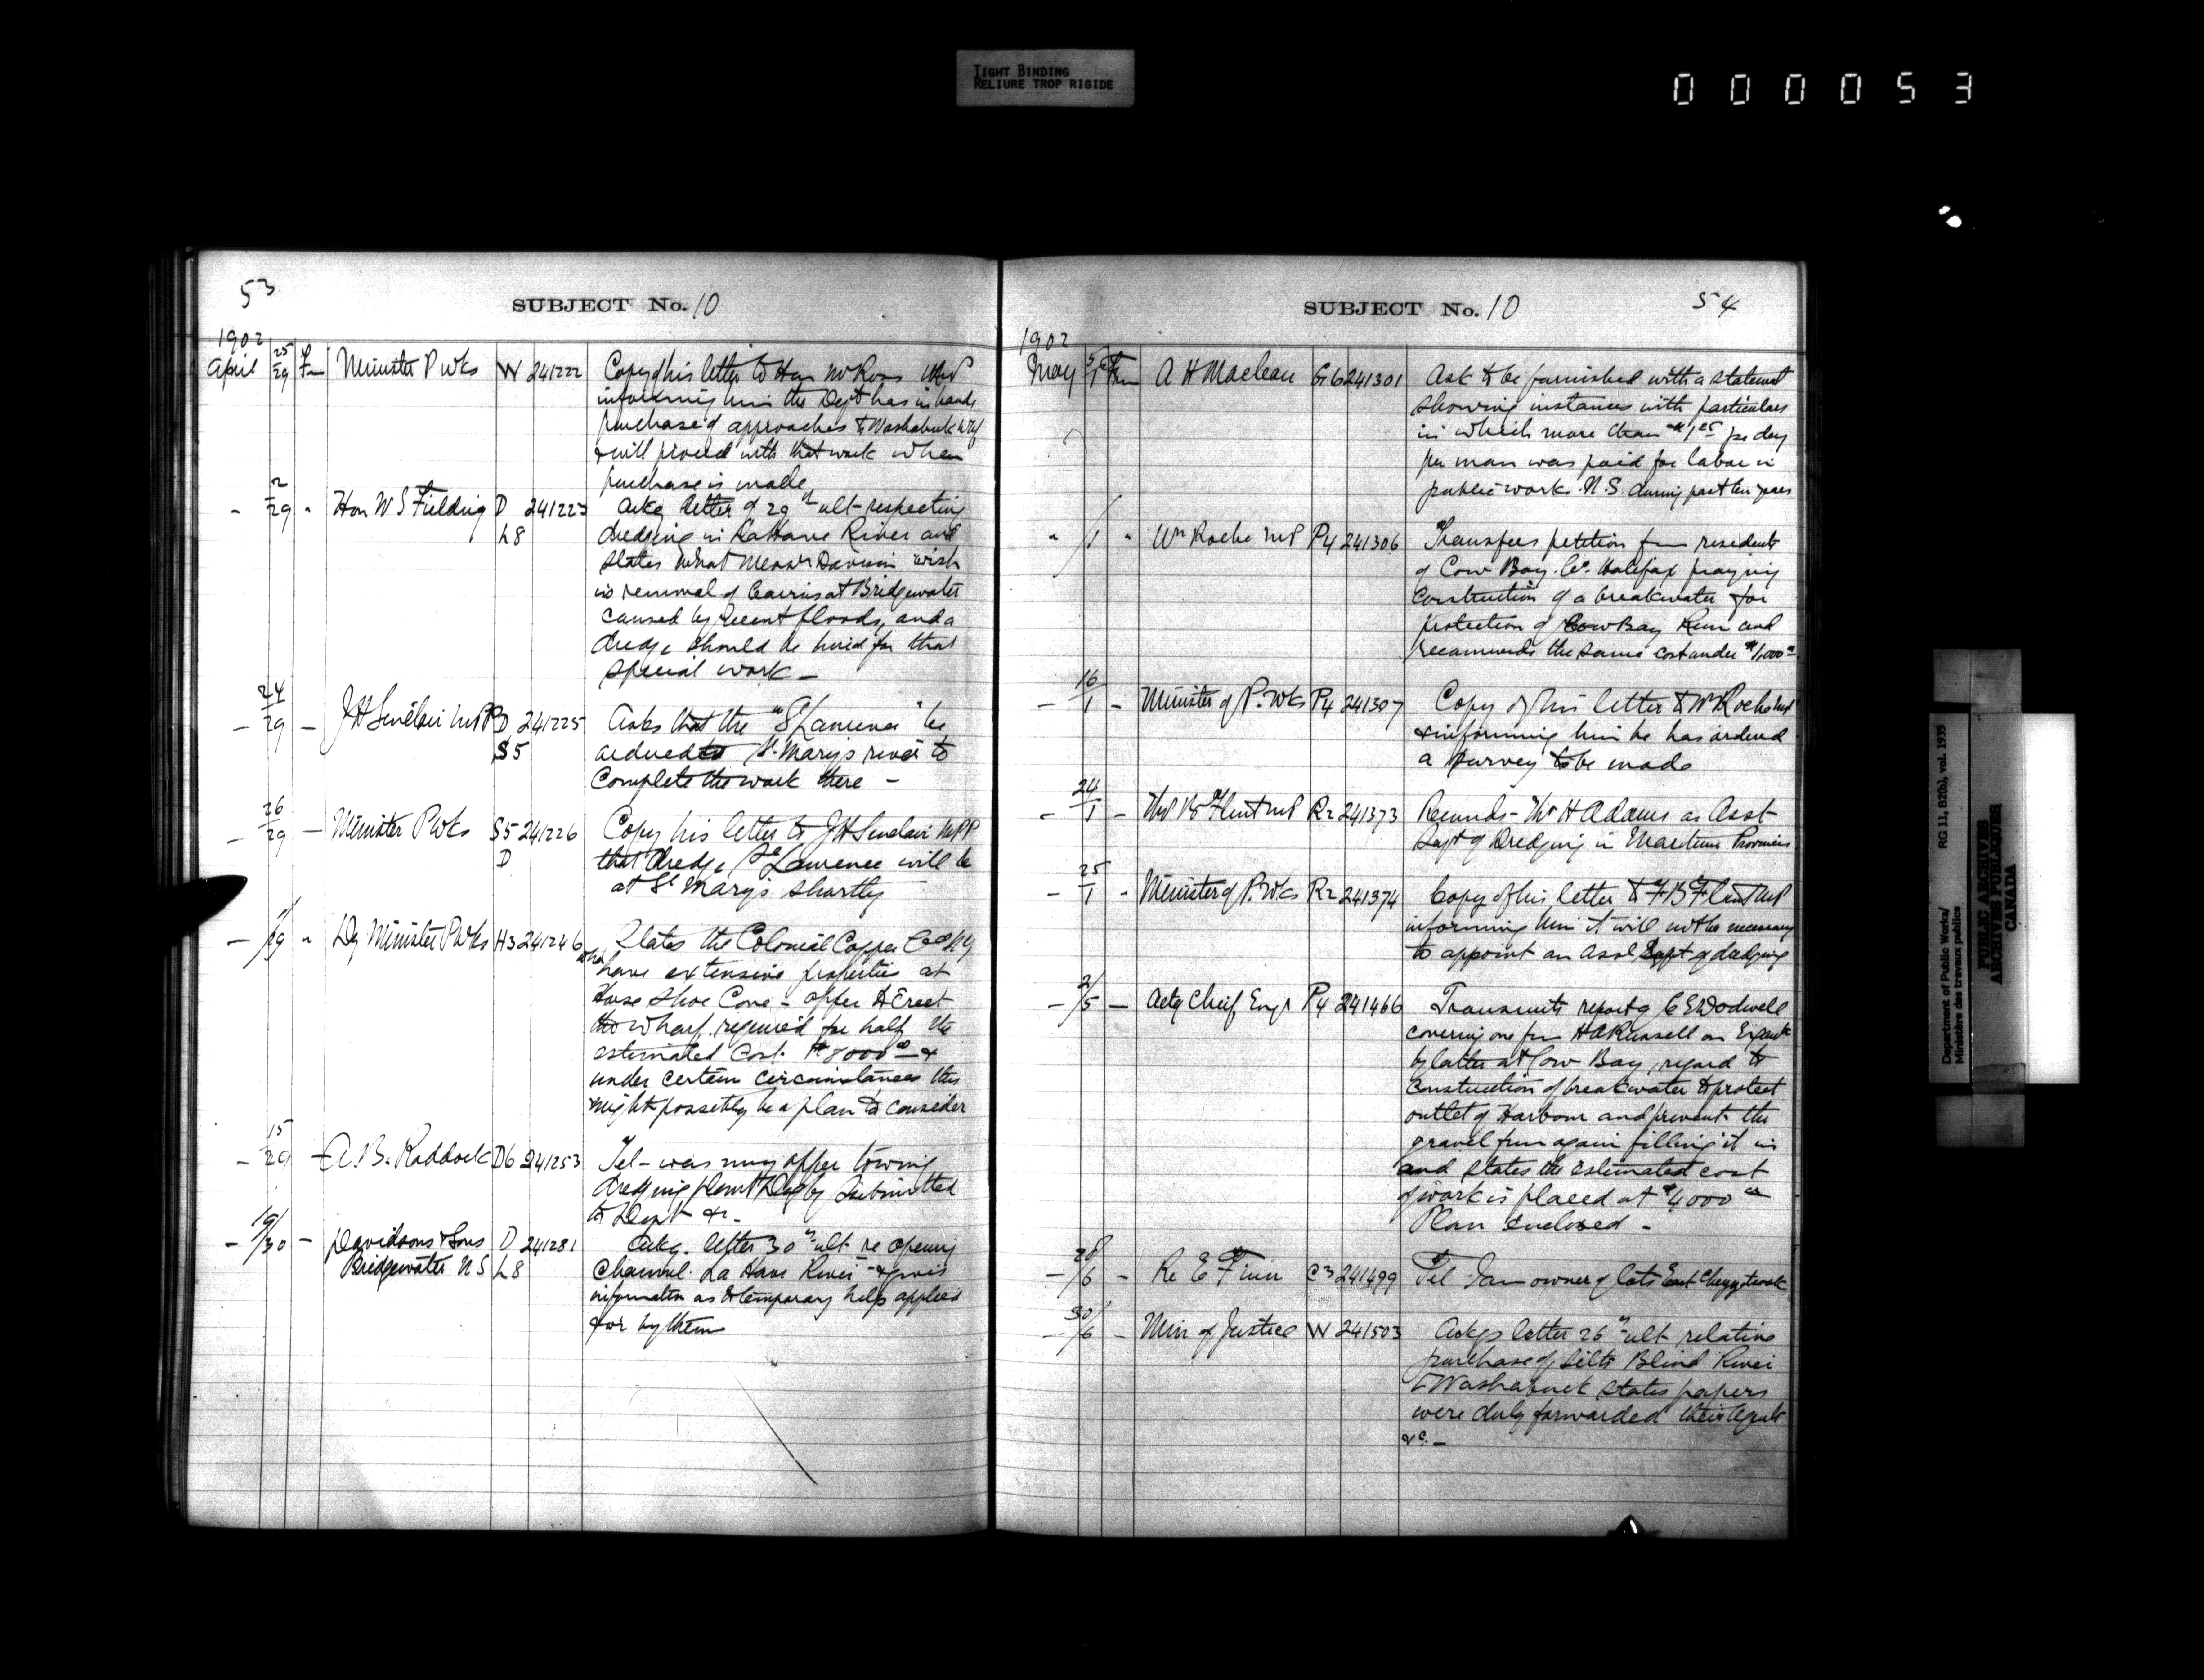 TIGHT BINDING
RELIURE TROP RIGIDE
000053
53
SUBJECT No. 10
1902
April 25/29 Fm Minister P Wks W 241222 Copy of his letter to Hon Mr Ross MP
informing him the Dept has in hands
purchase of approaches to Washabuck Whf
& will proceed with that work when
purchase is made
- 2/29 " Hon W S Fielding D 241223 Ackg letter of 29th ult respecting
L8 dredging in La Have River and
states what Messrs Davison wish
is removal of at Bridgewater
caused by recent floods, and a
dredge should be hired for that
special work -
- 24/29 - J H Sinclair MPP D 241225 Asks that the "St Lawrence" be
S5 St. Marys river to
complete the work there -
- 26/29 - Minister P Wks S5 241226 Copy his letter to J H Sinclair MPP
D that dredge St Lawrence will be
at St Marys shortly
- 1/29 " Dy Minister P Wks H3 241246 States the Colonial Copper Co of NY
who have extensive properties at
Horse Shoe Cove - offer to Erect
the wharf required for half the
estimated cost $8000 00 - &
under certain circumstances this
might possibly be a plan to consider
- 15/29 - A. B. Raddock D6 241253 Tel - was my offer towing
dredging plant Digby submitted
to Dept &c -
- 19/30 - Davidsons & Sons D 241281 Ackg. letter 30th ult re opening
Bridgewater N S L8 Channel La Have River - & gives
information as to temporary help applied
for by them
SUBJECT No. 10
54
1902
May 5/1 Fm A H Maclean G6 241301 Ask to be furnished with a statement
showing instances with particulars
in which more than $1 25 per day
per man was paid for labor in
public works N.S. during past ten years
" /1 " Wm Roche MP P4 241306 Transfers petition from residents
of Cow Bay. Co. Halifax praying
construction of a breakwater for
protection of Cow Bay Run and
recommends the same cost under $1,000 00.
- 16/1 - Minister of P. Wks P4 241307 Copy of his letter to W Roche MP
& informing him he has ordered
a survey to be made
- 24/1 - B Flint MP R2 241373 Recomds - Mr H Adams as Asst
Supt of Dredging in Maritime Provinces
- 25/1 - Minister of P. Wks R2 241374 Copy of his letter to T B Flint MP
informing him it will not be necessary
to appoint an Asst Supt of dredging
- 2/5 - Actg Chief Engr P4 241466 Transmits report of C E W Dodwell
covering one from H A Russell on
by latter at Cow Bay, regard to
construction of breakwater to protect
outlet of Harbour and prevent the
gravel from again filling it in
and states the estimated cost
of work is placed at $4000 00
Plan enclosed -
- 28/6 - Re E Finn C3 241499 Tel - I am owner of lots East Chezzetcook
- 30/6 - Min of Justice W 241503 Ackgs letter 26th ult relative
purchase of sites Blind River
& Washabuck states papers
were duly forwarded their Agents
&c. -
Department of Public Works/ RG 11, B2(b), vol. 1935
Ministère des travaux publics
PUBLIC ARCHIVES
ARCHIVES PUBLIQUES
CANADA